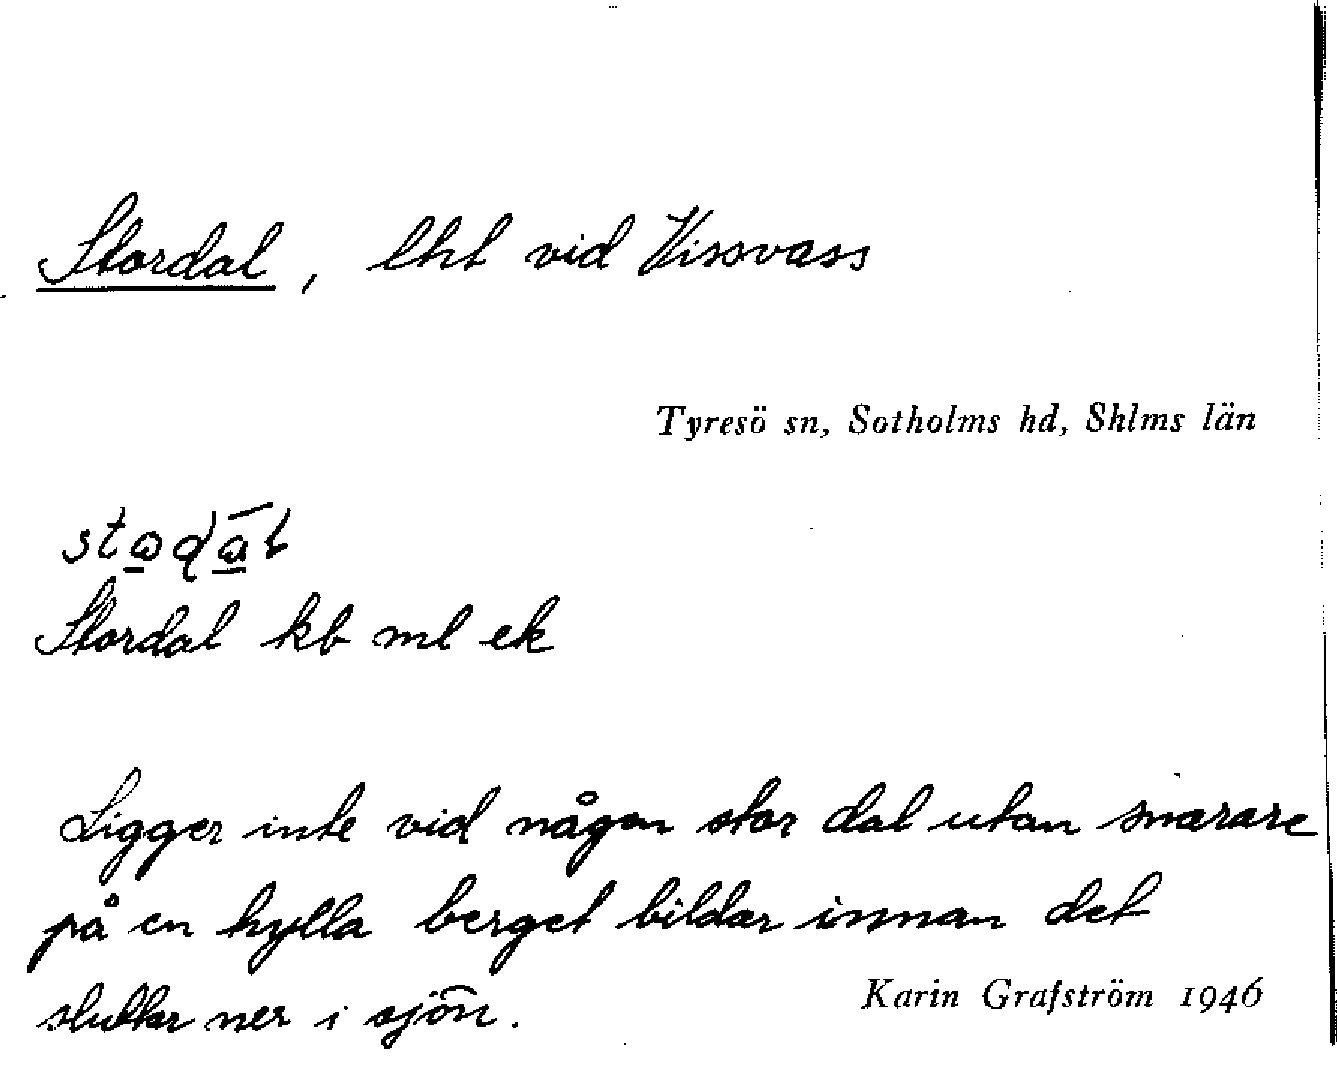 Stordal, lht vid Vissvass
Tyresö sn, Sotholms hd, Shlms län
Stordal kb ml ek
Ligger inte vid någon stor dal utan snarare
på en hylla berget bildar innan det
sluttar ner i sjön.
Karin Grafström 1946